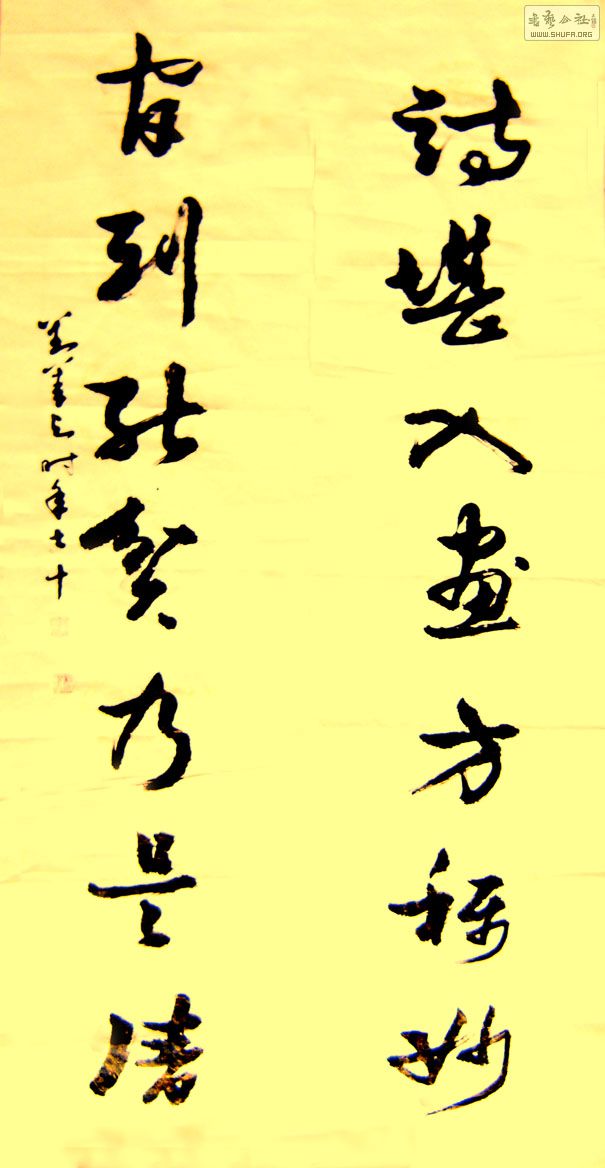 書藝公社
WWW.SHUFA.ORG
詩堪入畫方稱妙
官到能貧乃是清
时年七十